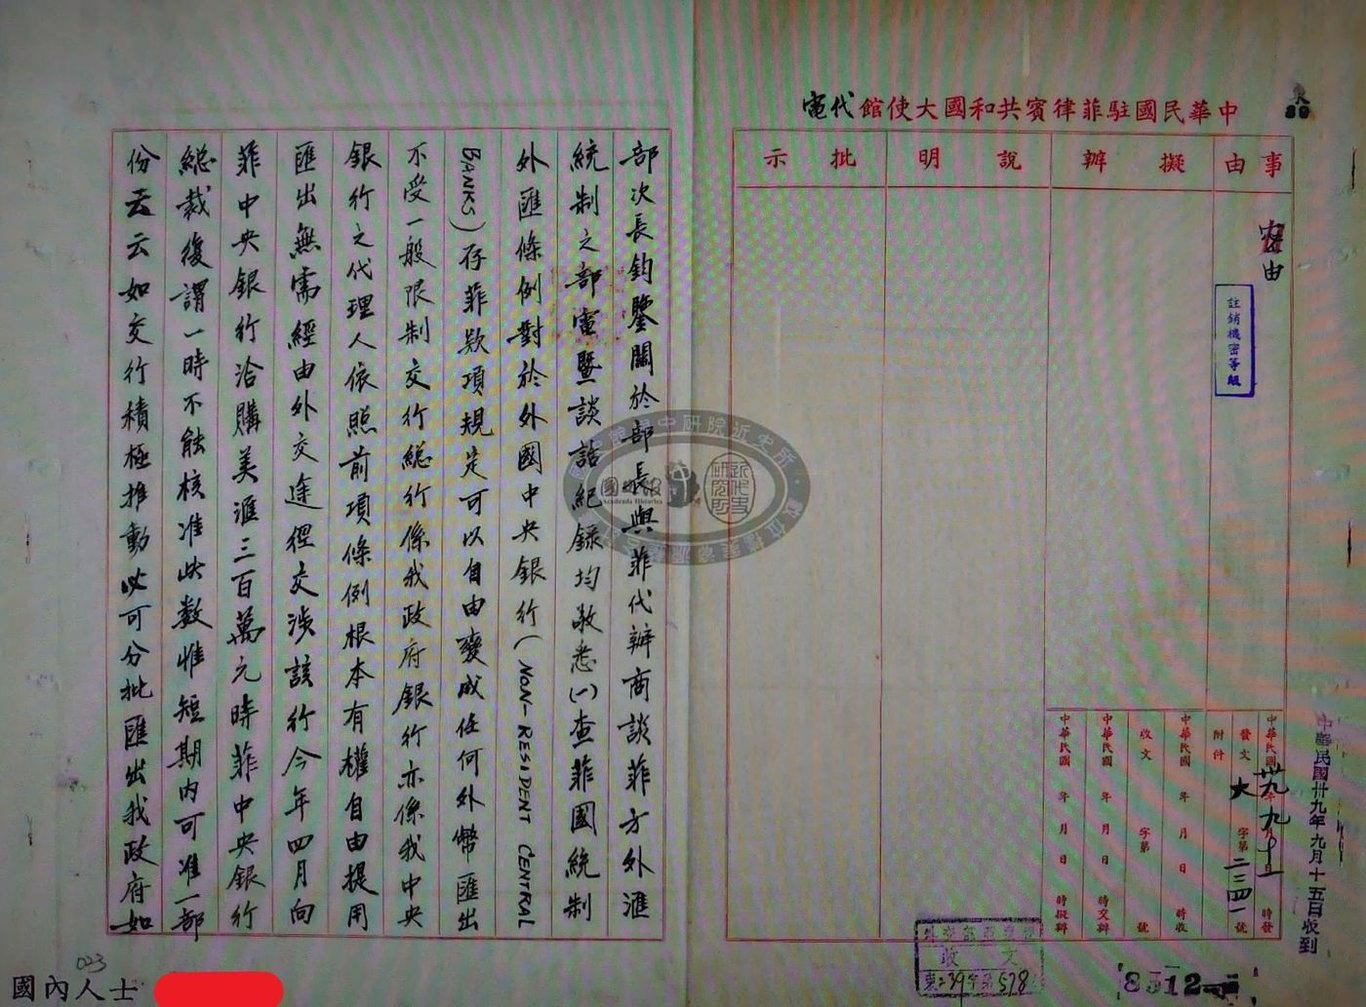 中華民國駐菲律賓共和國大使館代電
事由
擬辦
說明
批示
密
由
註銷機密等級
中華民國卅九年九月十五日收到
中華民國 卅九年九月十五日 時發
發文 大 字第二三四一號
附件
中華民國 年 月 日 時收
收文 字第 號
中華民國 年 月 日 時交辦
中華民國 年 月 日 時擬辦
收文
東39字第578
部次長鈞鑒關於部長與菲代辦商談菲方外滙
統制之部電暨談話紀錄均敬悉(一)查菲國統制
外匯條例對於外國中央銀行(NON-RESIDENT CENTRAL
BANKS)存菲欵項規定可以自由變成任何外幣匯出
不受一般限制交行總行係我政府銀行亦係我中央
銀行之代理人依照前項條例根本有權自由提用
匯出無需經由外交途徑交涉該行今年四月向
菲中央銀行洽購美滙三百萬元時菲中央銀行
總裁復謂一時不能核准此數惟短期內可准一部
份云云如交行積極推動必可分批匯出我政府如
023
國內人士